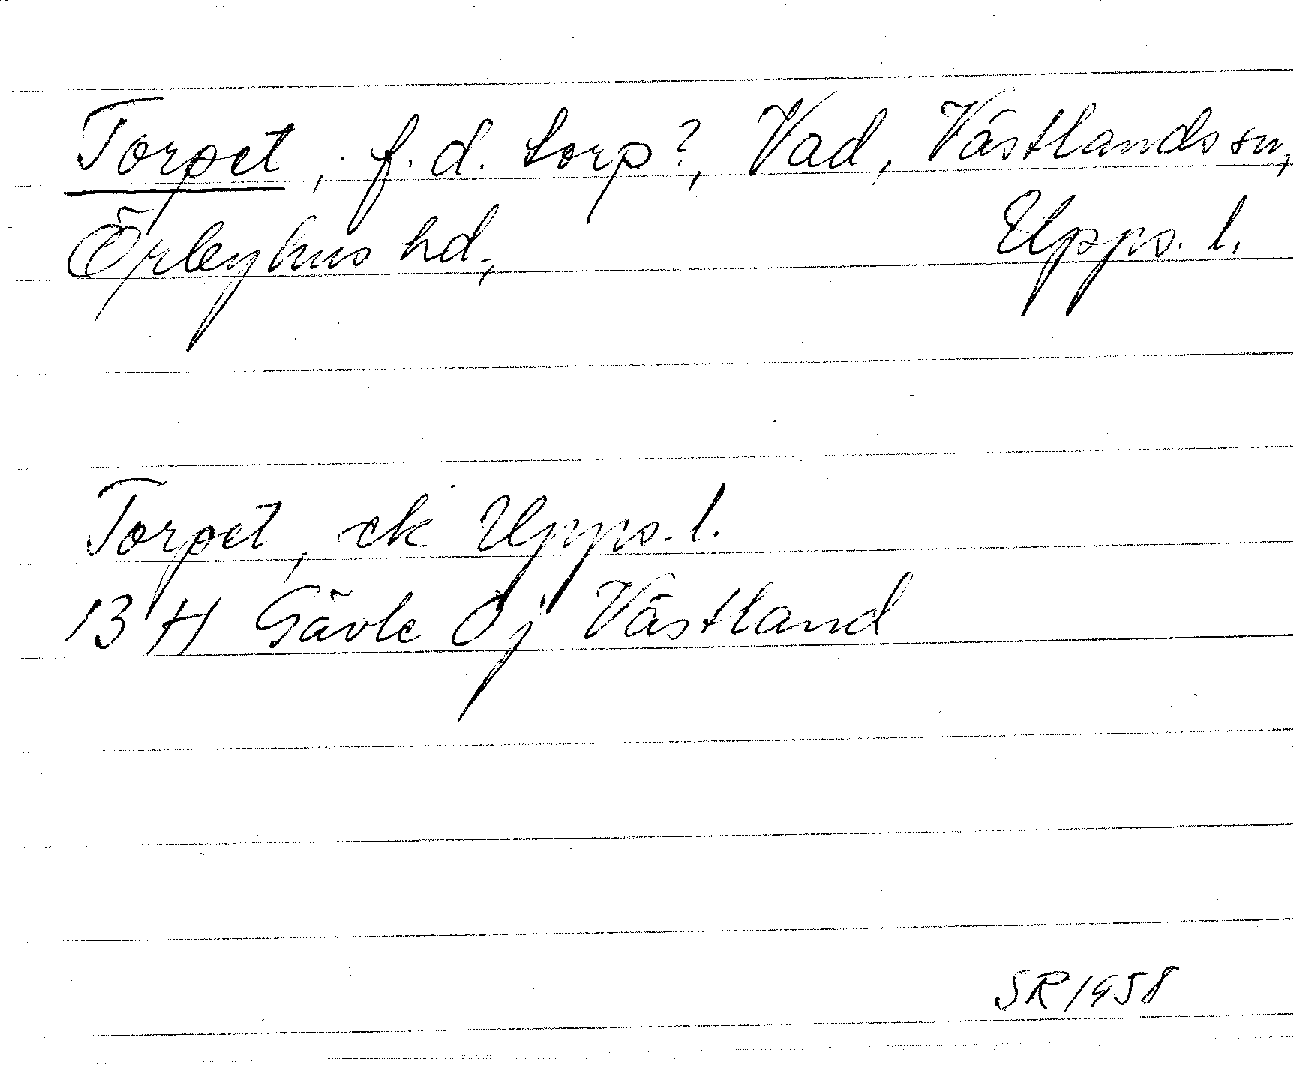 Torpet, f.d. torp?, Vad, Västlands sn,
Örbyhus hd, Upps. l.
Torpet, ek Upps. l.
13 H Gävle Öj Västland
SR 1958